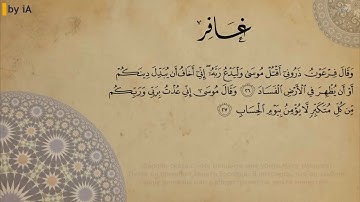 by iA
غَافِر
وَقَالَ فِرْعَوْنُ ذَرُونِىٓ أَقْتُلْ مُوسَىٰ وَلْيَدْعُ رَبَّهُۥٓ ۖ إِنِّىٓ أَخَافُ أَن يُبَدِّلَ دِينَكُمْ
أَوْ أَن يُظْهِرَ فِى ٱلْأَرْضِ ٱلْفَسَادَ ٢٦ وَقَالَ مُوسَىٰٓ إِنِّى عُذْتُ بِرَبِّى وَرَبِّكُم
مِّن كُلِّ مُتَكَبِّرٍ لَّا يُؤْمِنُ بِيَوْمِ ٱلْحِسَابِ ٢٧